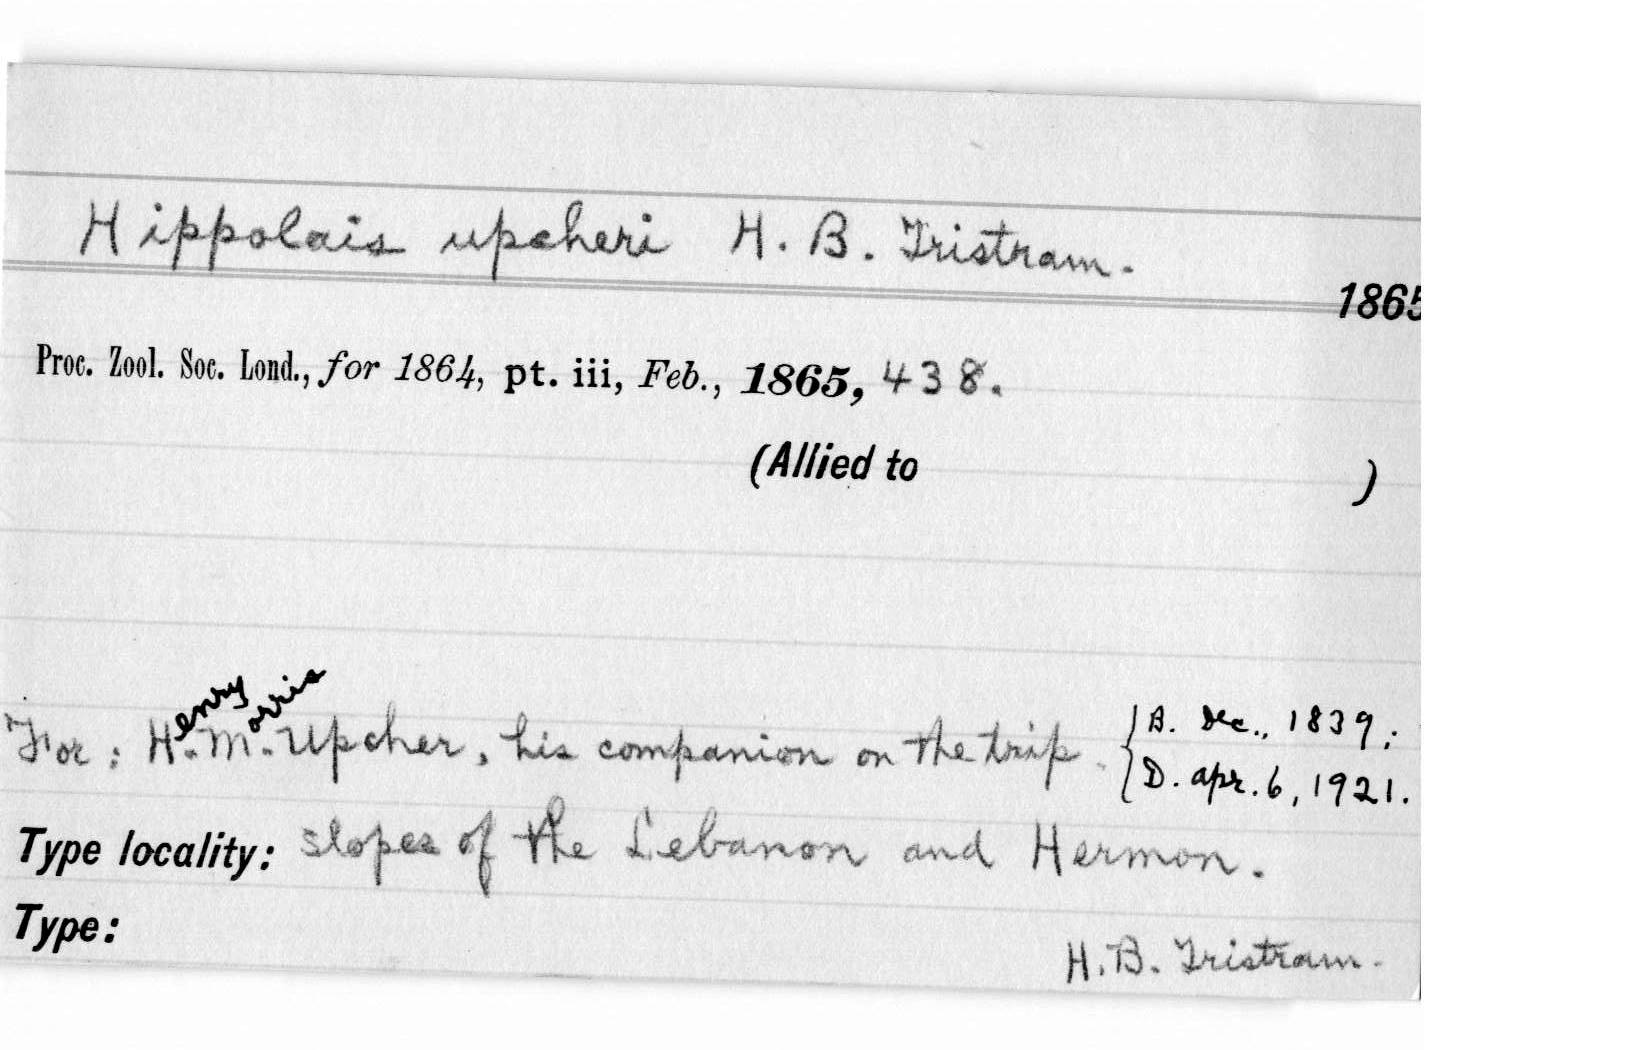 Hippolais upcheri H. B. Tristram.
1865
Proc. Zool. Soc. Lond., for 1864, pt. iii, Feb., 1865, 438.
(Allied to )
enry orris
For: H. M. Upcher, his companion on the trip. { B. Dec., 1839;
D. apr. 6, 1921.
Type locality: slopes of the Lebanon and Hermon.
Type:
H. B. Tristram.